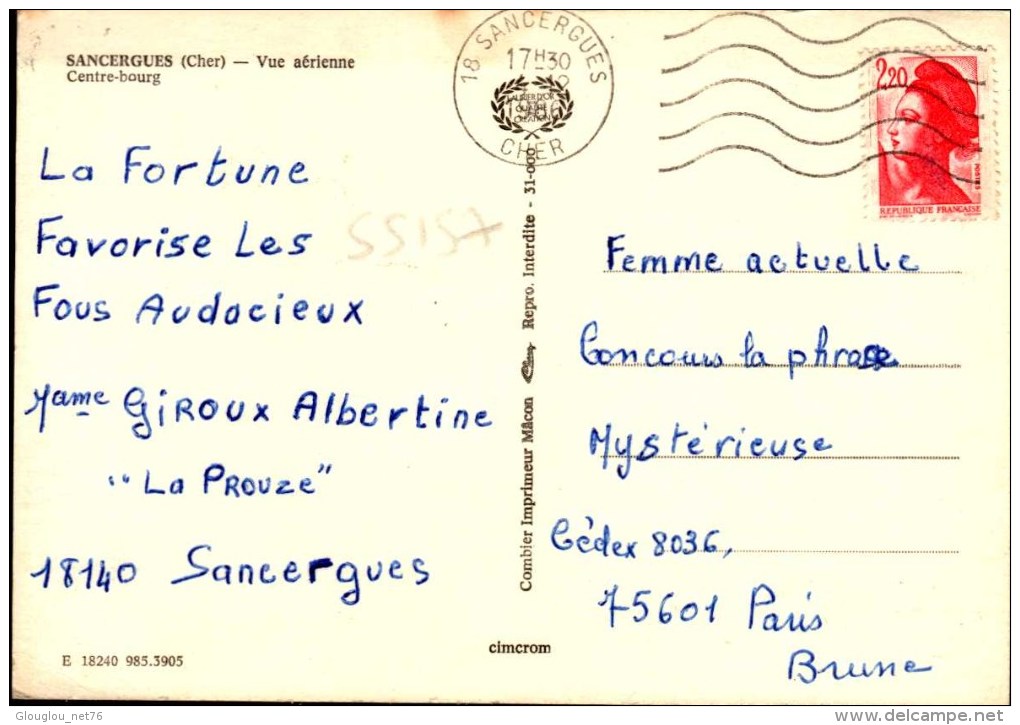 SANCERGUES (Cher) — Vue aérienne
Centre-bourg
La Fortune
Favorise Les
Fous Audacieux
Mame GIROUX Albertine
"La PROUZE"
18140 Sancergues
E 18240 985.3905
55157
18 SANCERGUES
17H30
CHER
Combier Imprimeur Mâcon Repro. Interdite - 31-000
cimcrom
2,20
POSTES
REPUBLIQUE FRANÇAISE
Femme actuelle
Concours la phrase
Mystérieuse
Cédex 8036,
75601 Paris
Brune
Glouglou_net76
www.delcampe.net